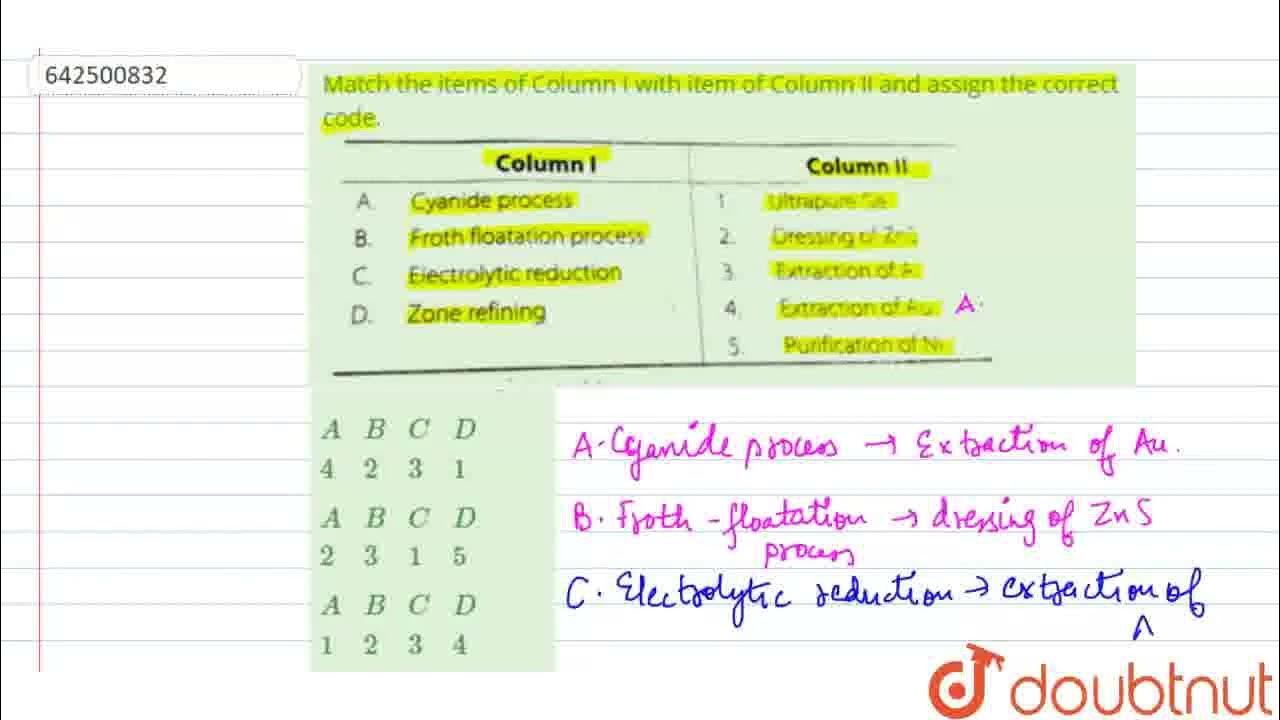 642500832
Match the items of Column I with item of Column II and assign the correct
code.
Column I Column II
A. Cyanide process 1.
B. Froth floatation process 2. Dressing of ZnS
C. Electrolytic reduction 3. Extraction of
D. Zone refining 4. Extraction of Au A.
5. Purification of
A B C D
4 2 3 1
A B C D
2 3 1 5
A B C D
1 2 3 4
A. Cyanide process → Extraction of Au.
B. Froth-floatation → dressing of ZnS
process
C. Electrolytic reduction → extraction of
A
doubtnut